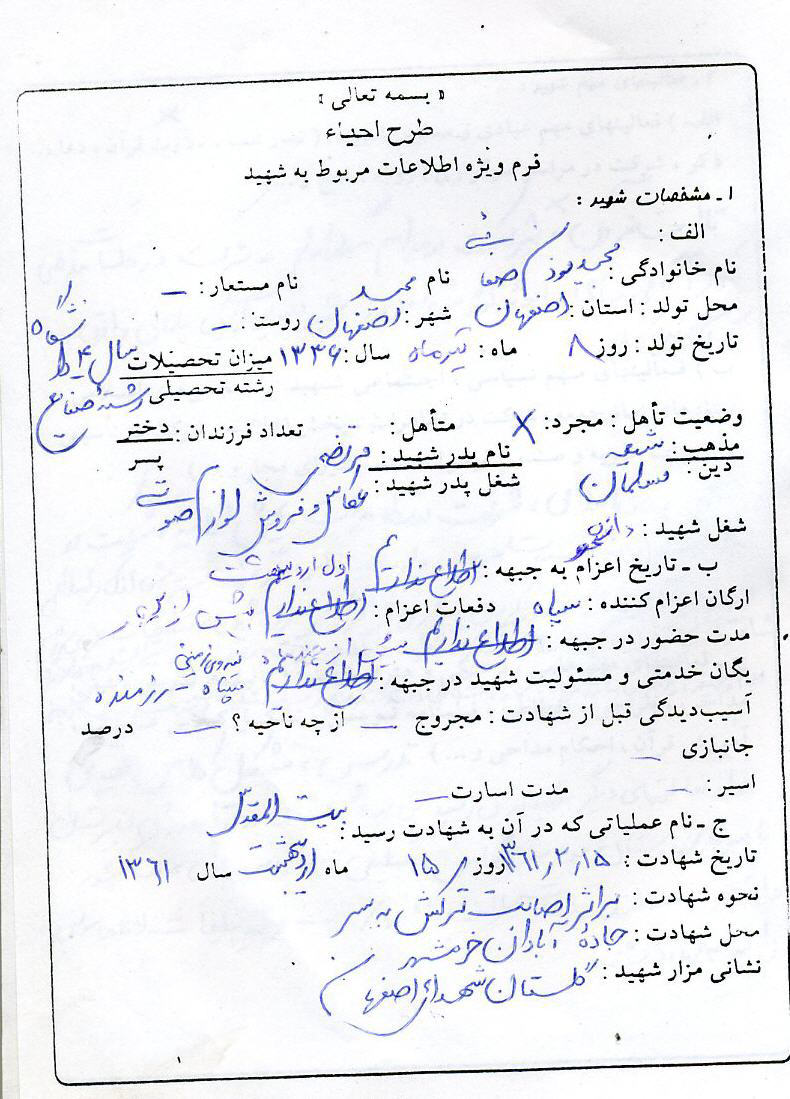 « بسمه تعالی »
طرح احیاء
فرم ویژه اطلاعات مربوط به شهید
۱ـ مشخصات شهید :
الف :
نام خانوادگی : نام مجید نام مستعار : ــ
محل تولد : استان : اصفهان شهر : اصفهان روستا : ــ
تاریخ تولد : روز ۸ ماه : تیرماه سال : ۱۳۳۶ میزان تحصیلات سال ۴ دانشگاه
رشته تحصیلی رشته صنایع
وضعیت تأهل : مجرد : X متأهل : تعداد فرزندان : دختر
پسر
مذهب : شیعه نام پدر شهید : مرتضی
دین : مسلمان شغل پدر شهید : عکاس و فروش لوازم صوتی
شغل شهید : دانشجو
ب ـ تاریخ اعزام به جبهه : اطلاع نداریم اول اردیبهشت
ارگان اعزام کننده : سپاه دفعات اعزام : اطلاع نداریم بیش از
مدت حضور در جبهه : اطلاع نداریم بیش از
یگان خدمتی و مسئولیت شهید در جبهه : اطلاع نداریم نیروی زمینی سپاه ـ رزمنده
آسیب‌دیدگی قبل از شهادت : مجروح ــ از چه ناحیه ؟ ــ درصد
جانبازی ــ
اسیر : ــ مدت اسارت ــ
ج ـ نام عملیاتی که در آن به شهادت رسید : بیت المقدس
تاریخ شهادت : ۱۳۶۱٫۲٫۱۵ روز ۱۵ ماه اردیبهشت سال ۱۳۶۱
نحوه شهادت : براثر اصابت ترکش به سر
محل شهادت : جادهٔ آبادان خرمشهر
نشانی مزار شهید : گلستان شهدای اصفهان
۱